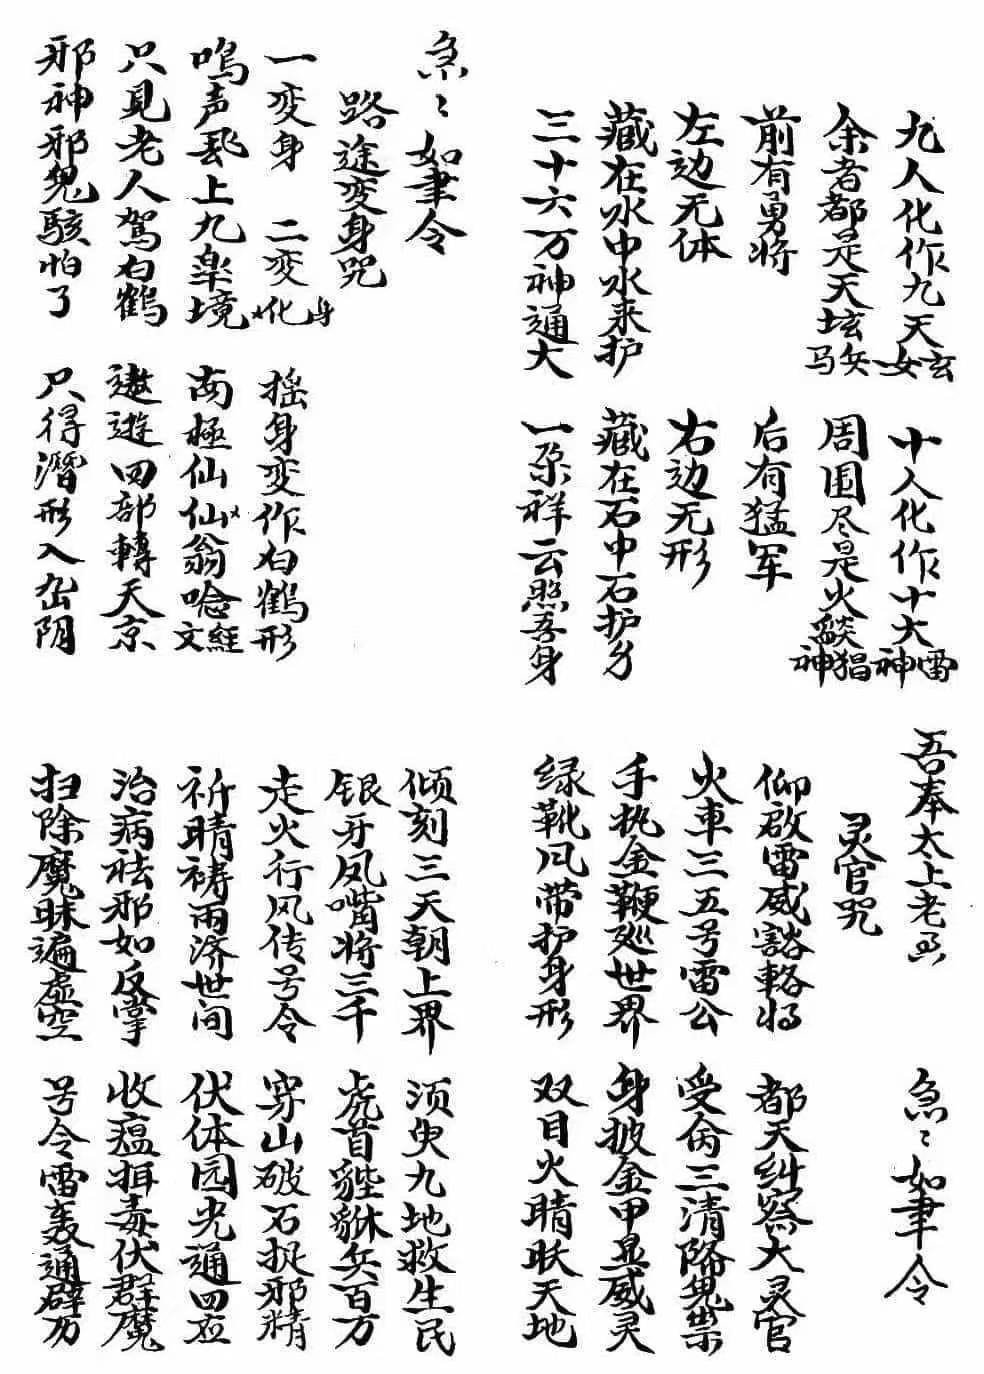 九人化作九天玄女 十人化作十大雷神
余者都是天坛兵马 周围尽是火焱猖神
前有勇将 后有猛军
左边无体 右边无形
藏在水中水来护 藏在石中石护身
三十六万神通大 一朵祥云照吾身
急〻如聿令
路途变身咒
一变身 二变化身 摇身变作白鹤形
鸣声飛上九楽境 南極仙仙翁唸經文
只見老人駕白鶴 遨遊四部轉天京
邪神邪鬼駭怕了 只得潛形入阴
吾奉太上老君 急〻如聿令
灵官咒
仰啟雷威豁輅将 都天糾察大灵官
火車三五号雷公 受命三清降鬼祟
手执金鞭廵世界 身披金甲显威灵
绿靴风带护身形 双目火睛耿天地
倾刻三天朝上界 须臾九地救生民
银牙凤嘴将三千 虎首貔貅兵百万
走火行风传号令 穿山破石捉邪精
祈晴祷雨济世间 伏体园光通四应
治病祛邪如反掌 收瘟毒伏群魔
扫除魔昧遍虚空 号令雷轰通辟历